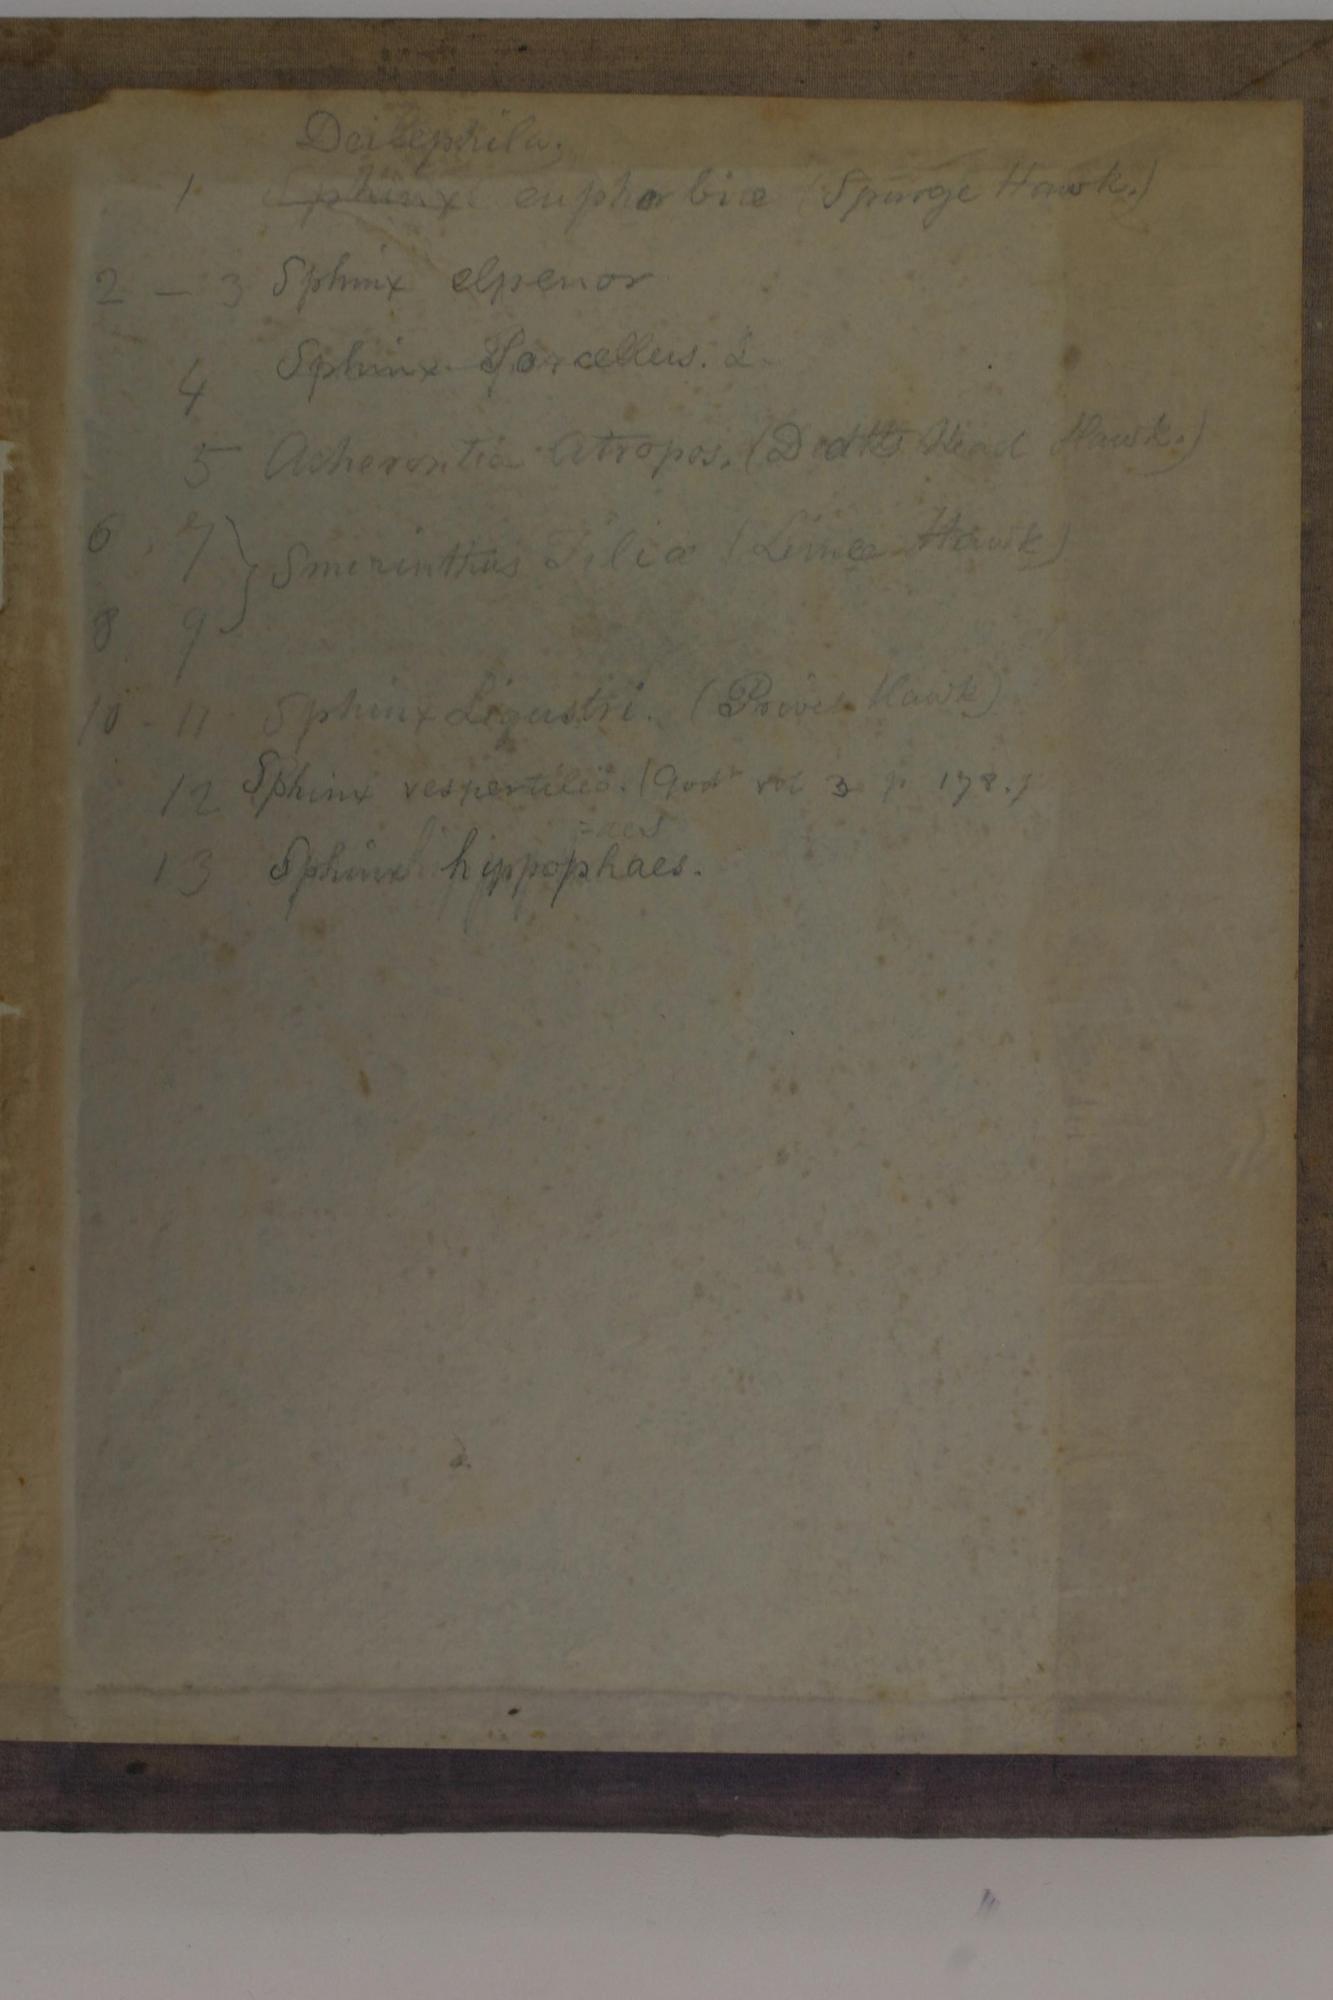 Deilephila.
1 Sphinx euphorbiæ (Spurge Hawk.)
2 - 3 Sphinx elpenor
4 Sphinx Porcellus. L.
5 Acherontia Atropos. (Deaths Head Hawk.)
6, 7 } Smerinthus Tiliæ (Lime Hawk)
8 9
10 - 11 Sphinx Ligustri. (Privet Hawk)
12 Sphinx vespertilio. (God vol 3 p 178.)
-aes
13 Sphinx hippophaes.